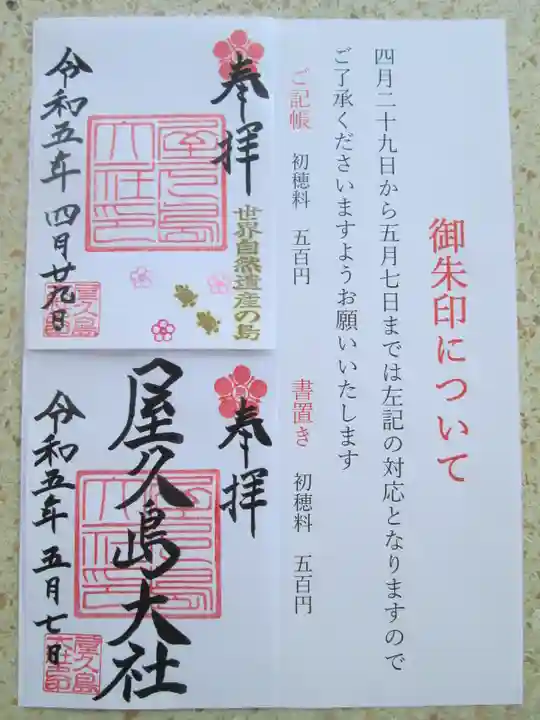 御朱印について
四月二十九日から五月七日までは左記の対応となりますので
ご了承くださいますようお願いいたします
ご記帳 初穂料 五百円
書置き 初穂料 五百円
奉拝
世界自然遺産の島
屋久島
大社印
令和五年 四月廿九日
屋久島
大社印
奉拝
屋久島大社
屋久島
大社印
令和五年 五月七日
屋久島
大社印